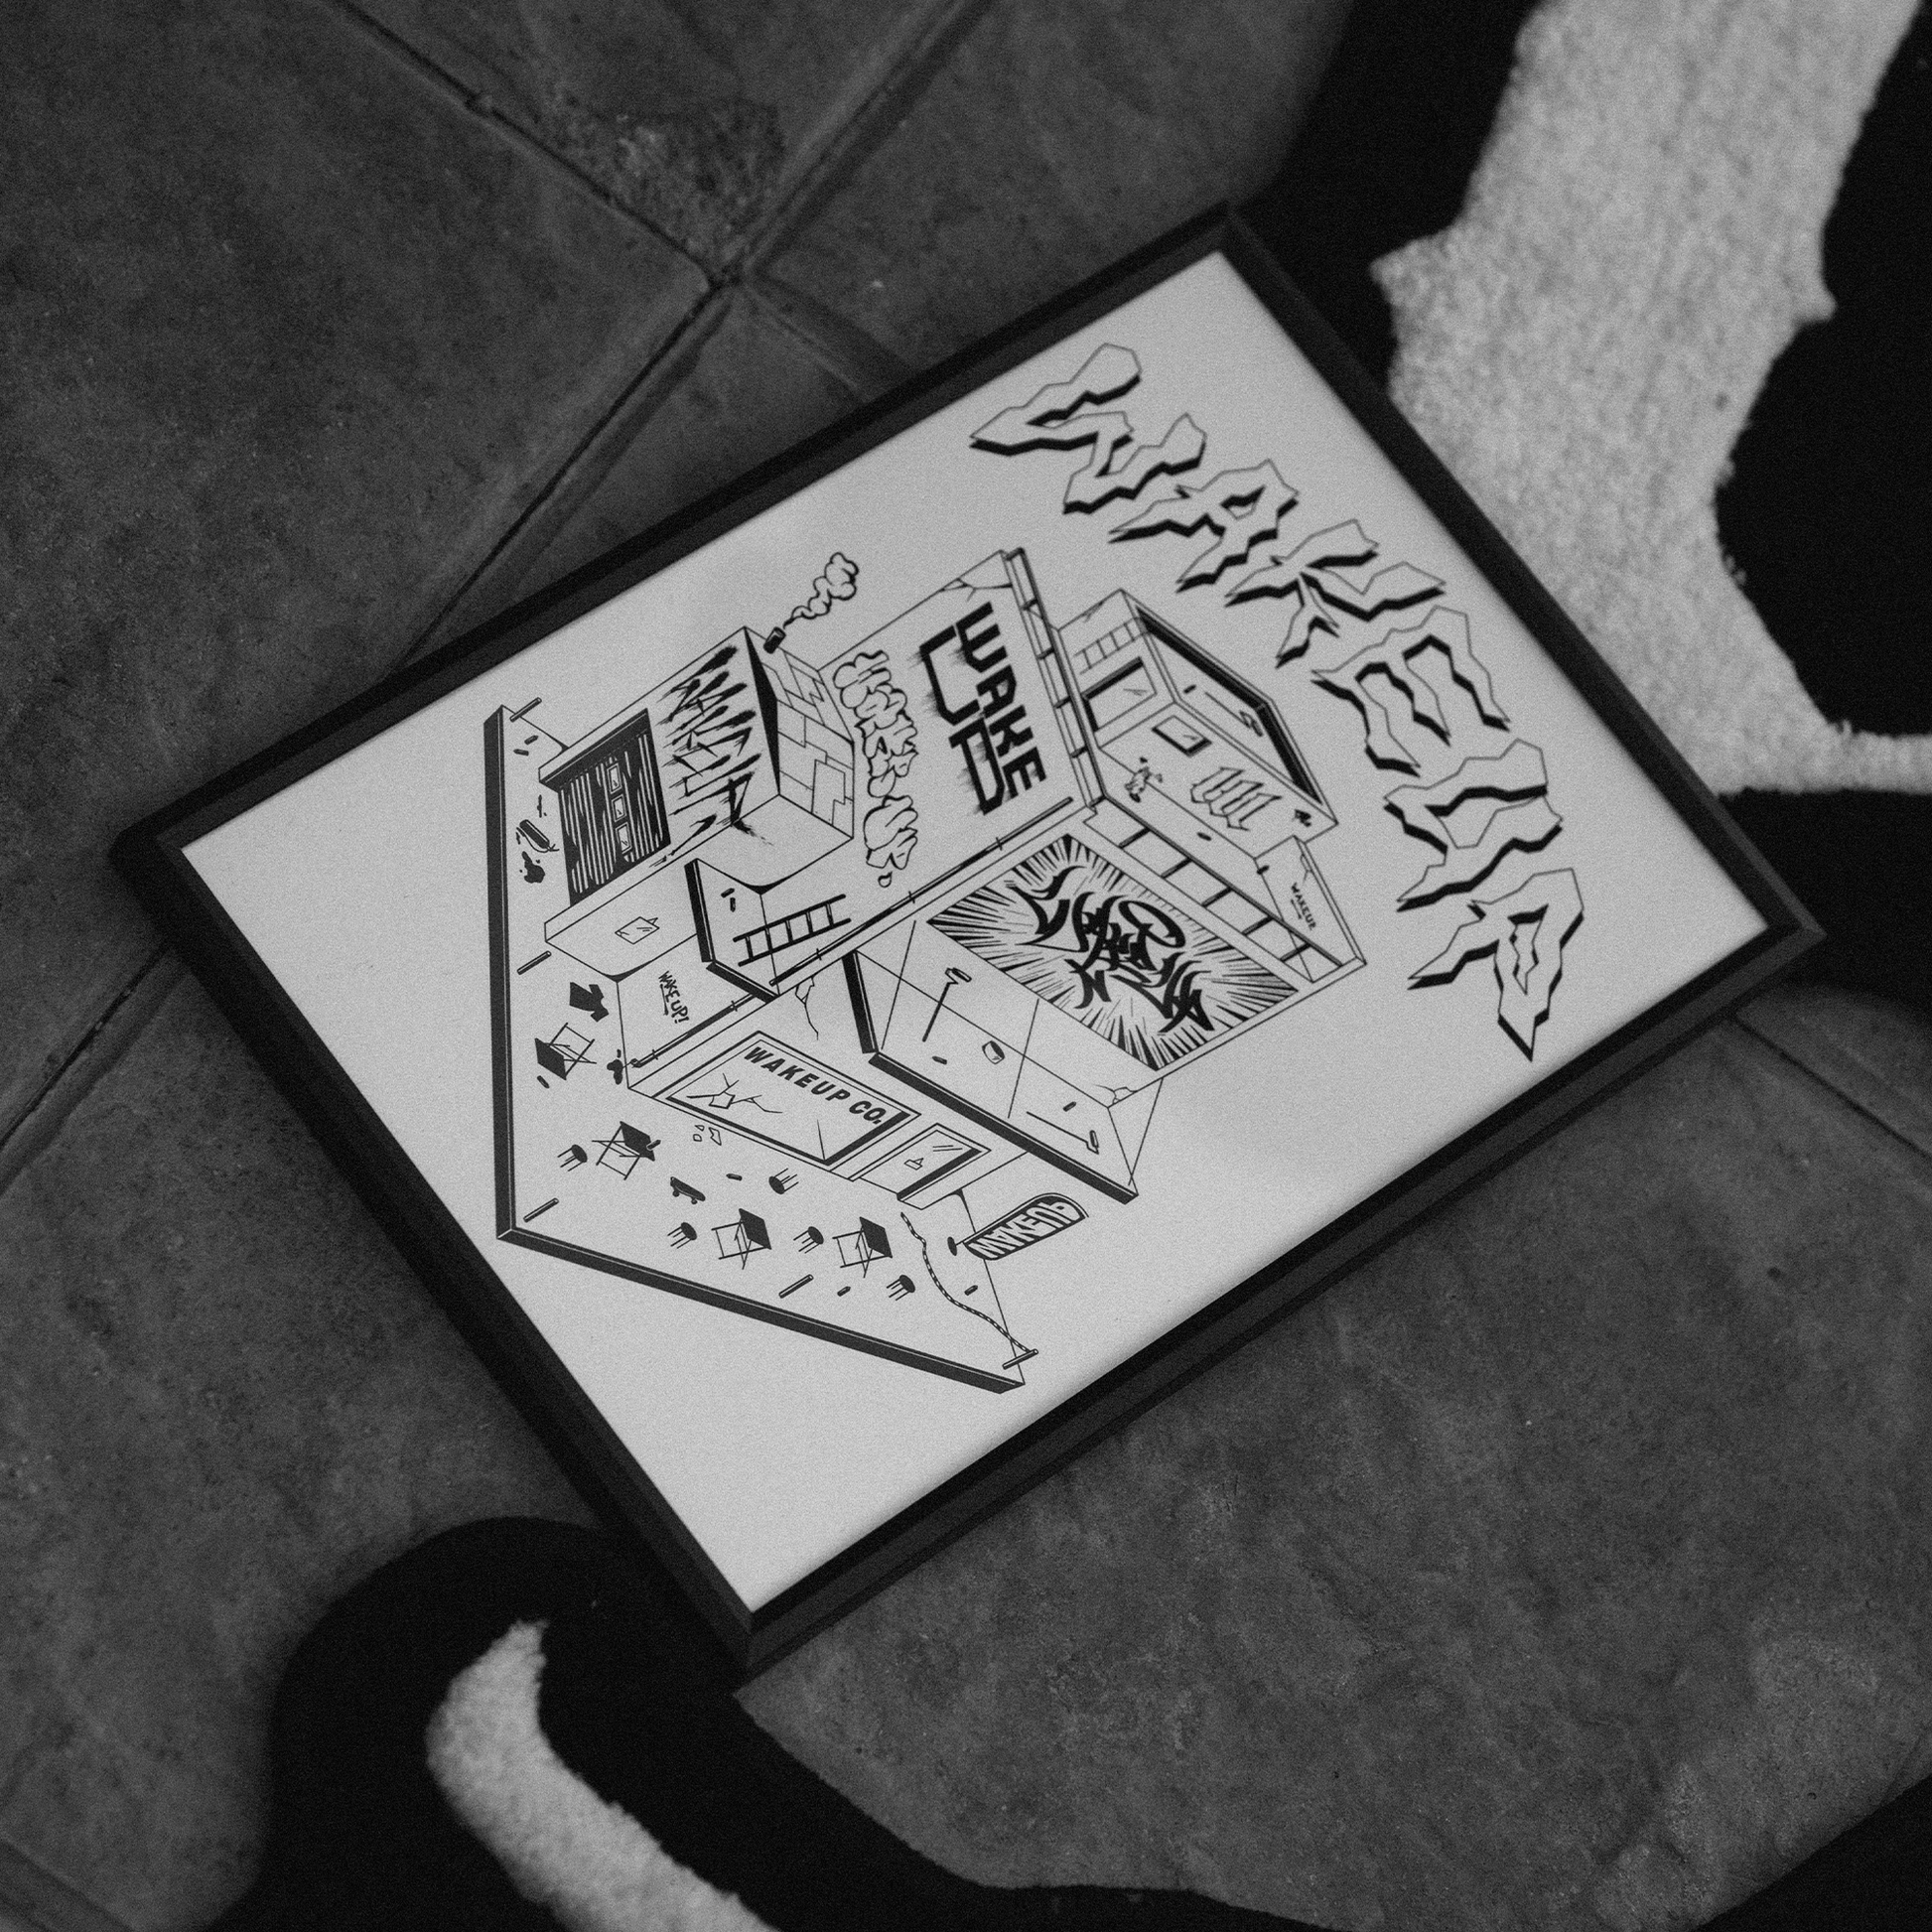 WAKEUP
WAKE
UP
WAKEUP
WAKEUP
WAKE UP!
WAKEUP CO.
WAKEUP